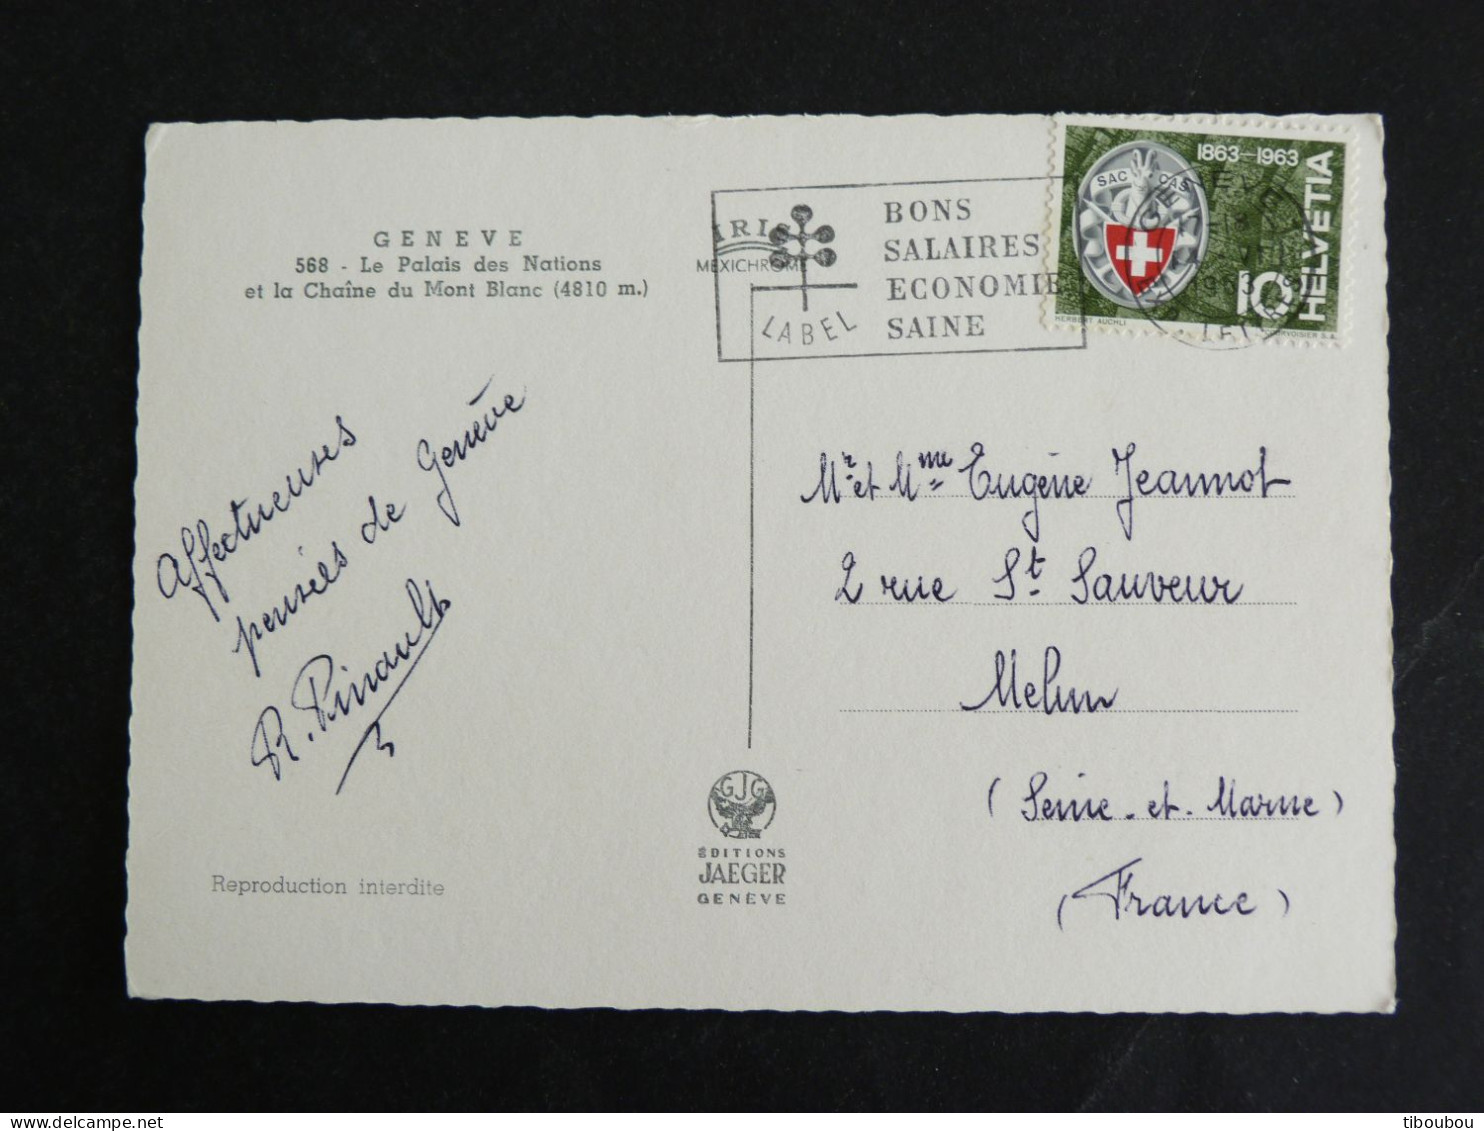 GENEVE
568 - Le Palais des Nations
et la Chaîne du Mont Blanc (4810 m.)
IRIS
MEXICHROME
LABEL
BONS
SALAIRES
ECONOMIE
SAINE
1863-1963
HELVETIA
SAC CAS
10
HERBERT AUCHLI
COURVOISIER S.A.
GENÈVE
1963
Affectueuses
pensées de Genève
R. Pinault
Mr et Mme Eugène Jeannot
2 rue St. Sauveur
Melun
(Seine-et-Marne)
(France)
GJG
ÉDITIONS
JAEGER
GENÈVE
Reproduction interdite
tiboubou